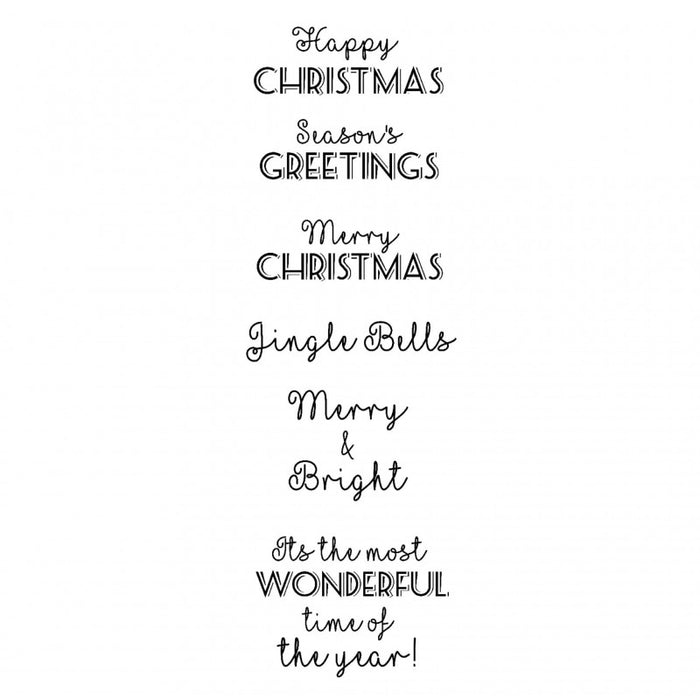 Happy
CHRISTMAS
Season's
GREETINGS
Merry
CHRISTMAS
Jingle Bells
Merry
&
Bright
Its the most
WONDERFUL
time of
the year!